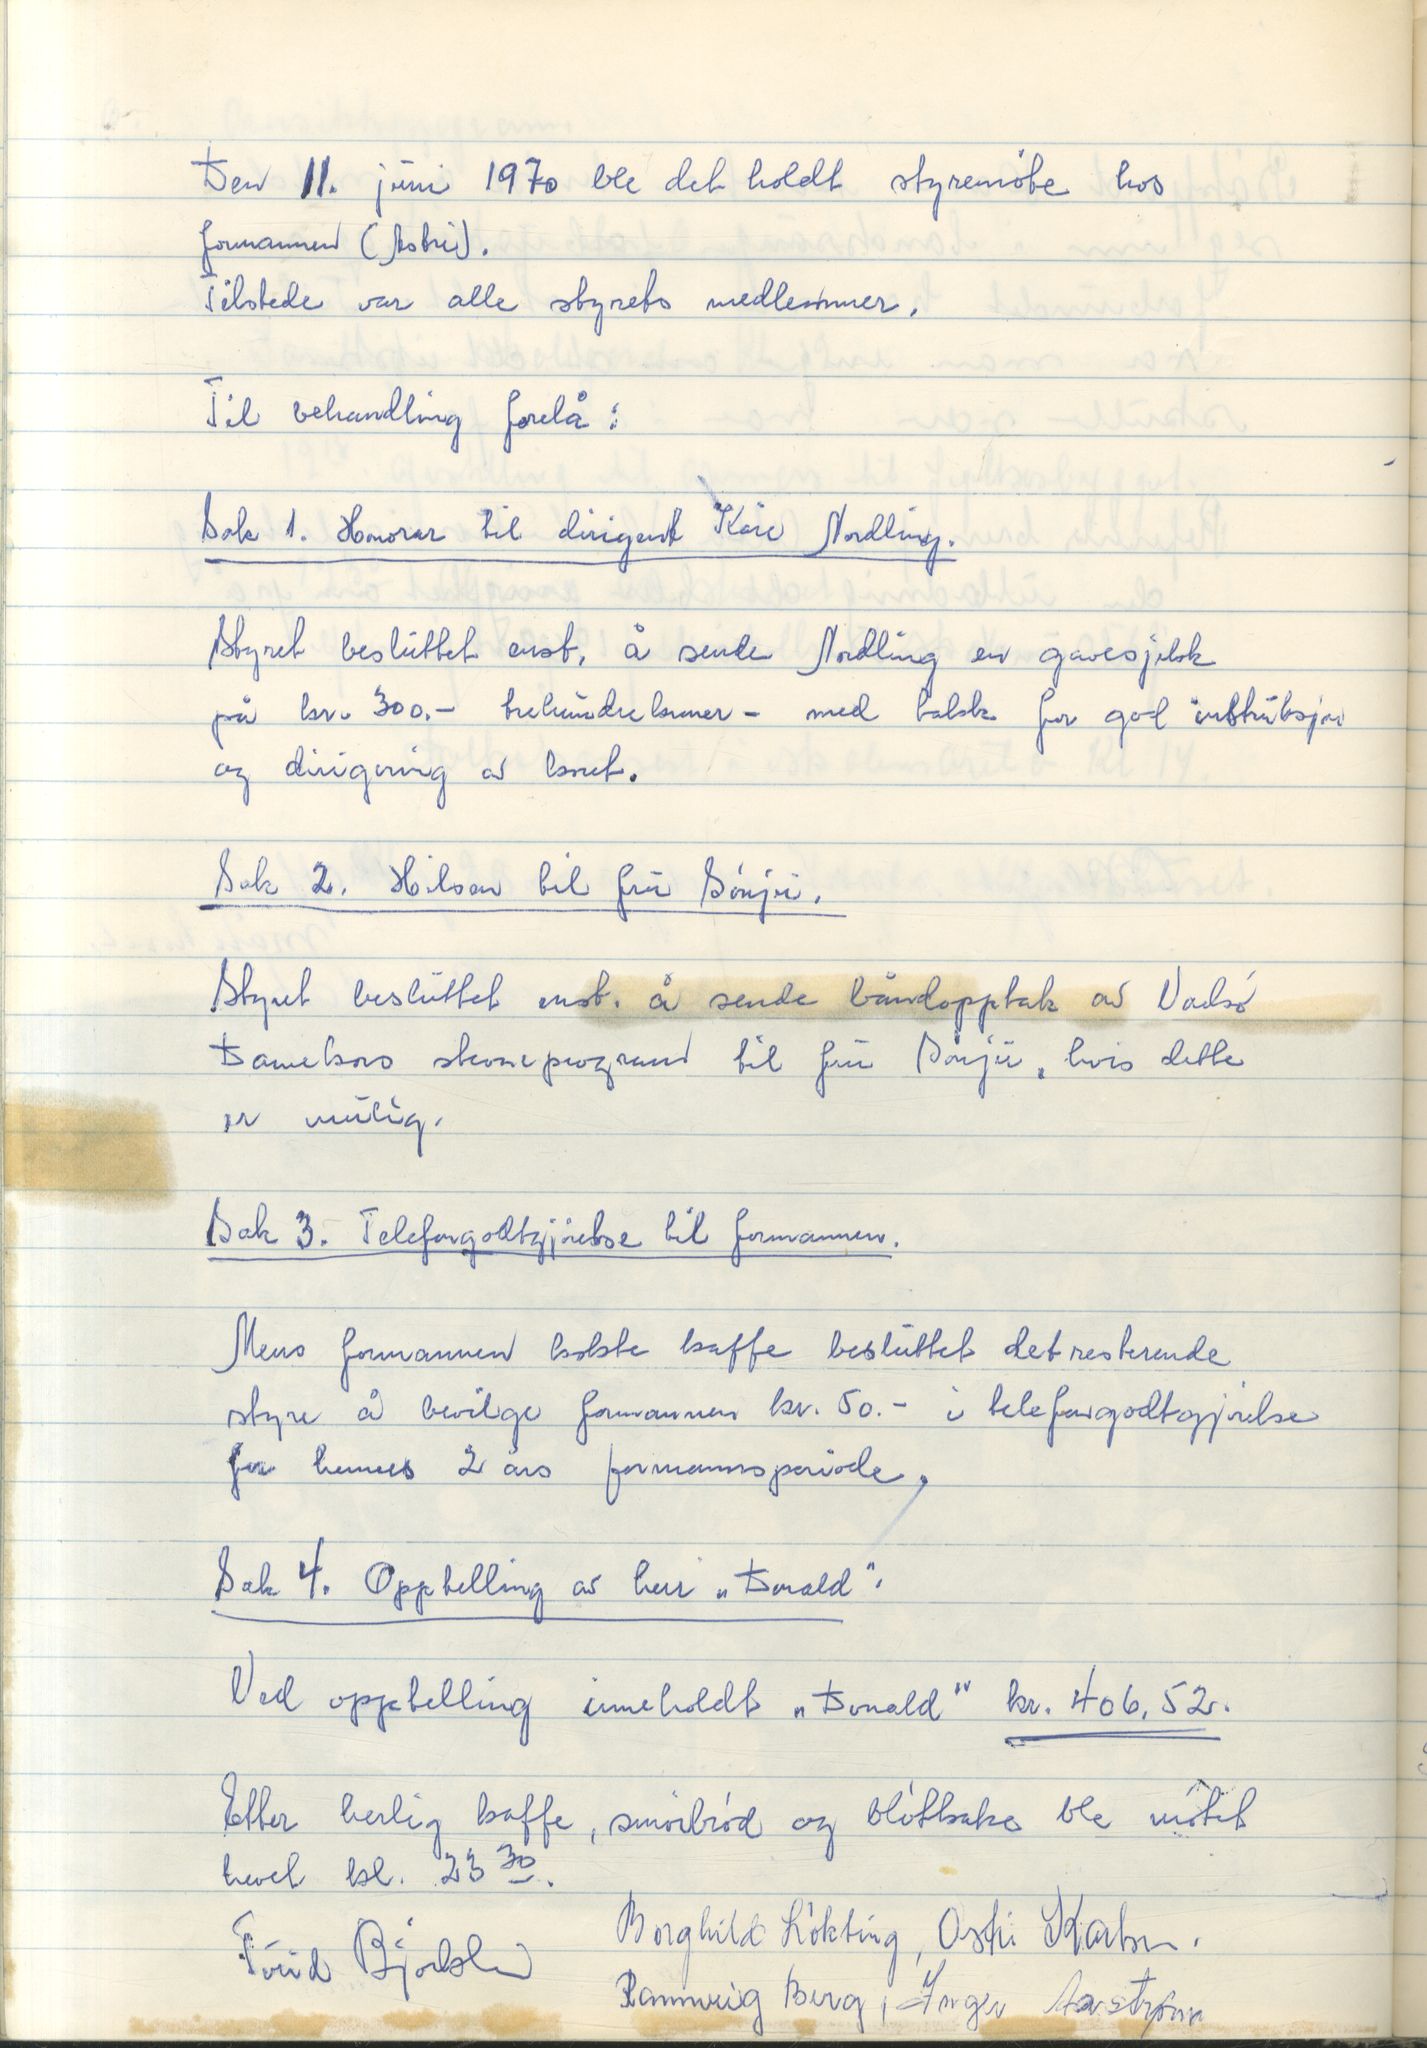 Den 11. juni 1970 ble det holdt styremöte hos
formannen (Astri).
Tilstede var alle styrets medlemmer.
Til behandling forelå:
Sak 1. Honorar til dirigent Kåre Nordling.
Styret besluttet enst. å sende Nordling en gavesjekk
på kr. 300.- trehundrekroner - med takk for god instruksjon
og dirigering av koret.
Sak 2. Hilsen til fru Sönju.
Styret besluttet enst. å sende båndopptak av Vadsö
Damekors stevneprogram til fru Sönju, hvis dette
er mulig.
Sak 3. Telefongodtgjörelse til formannen.
Mens formannen kokte kaffe besluttet det resterende
styre å bevilge formannen kr. 50.- i telefongodtgjörelse
for hennes 2 års formannsperiode.
Sak 4. Opptelling av herr „Donald".
Ved opptelling inneholdt „Donald" kr. 406,52.
Etter herlig kaffe, smörbröd og blötkake ble mötet
hevet kl. 23 30.
Turid
Borghild Lökting, Astri Karlsen.
Rannveig Berg, Inger